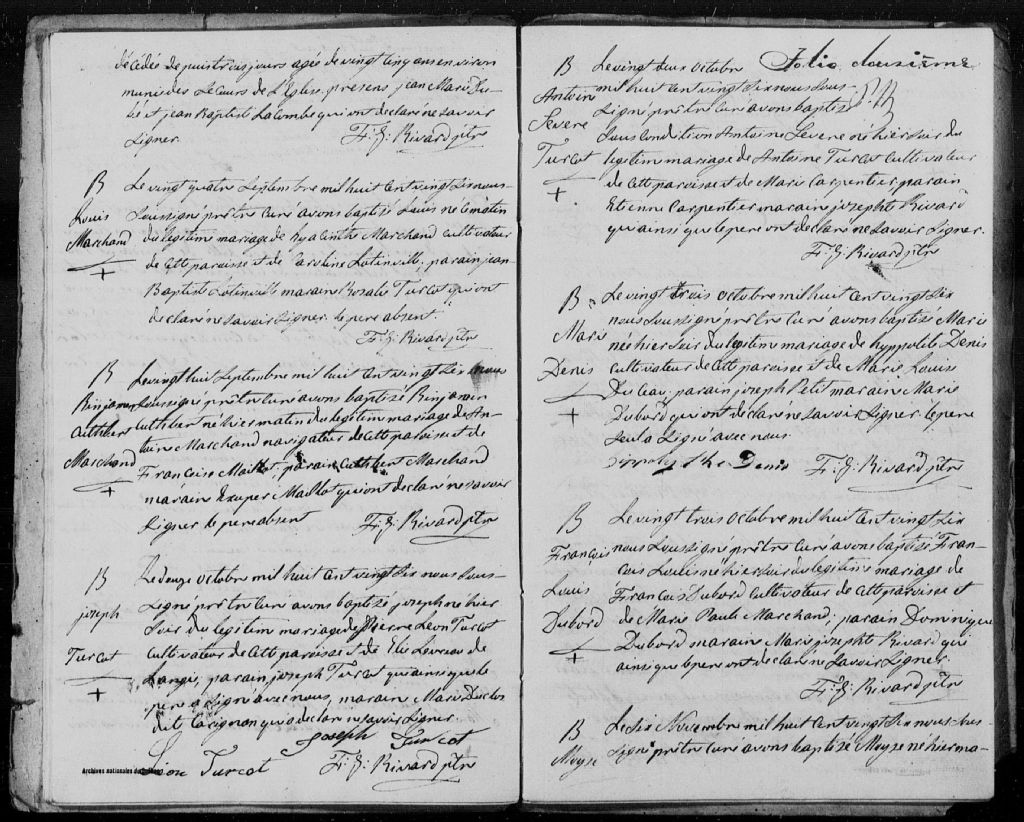 décédée depuis trois jours agée de vingt cinq ans environ
munie des Secours de L'Eglise, présens, jean Marie
et jean Baptiste Lacombe qui ont declaré ne savoir
signer. F: X: Rivard ptr
B
Louis
Marchand
+
Le vingt quatre Septembre mil huit cent vingt six nous
Soussigné prêtre curé avons baptisé Louis né ce matin
du legitime mariage de hyacinthe Marchand cultivateur
de cette paroisse et de Caroline Lotinville, parain jean
Baptiste Lotinville maraine Rosalie Turcot qui ont
declaré ne savoir signer le pere absent.
F: X: Rivard ptr
B
Binjamin
Cuthbert
Marchand
+
Le vingt huit Septembre mil huit cent vingt six nous
Soussigné prêtre curé avons baptisé Binjamin
Cuthbert né hier matin du legitime mariage de An-
toine Marchand navigateur de cette paroisse et de
Françoise Maillot, parain Cuthbert Marchand
maraine Exupere Maillot qui ont declaré ne savoir
signer le pere absent F: X: Rivard ptr
B
joseph
Turcot
+
Le douze octobre mil huit cent vingt six nous Sous-
signé prêtre curé avons baptisé joseph né hier
soir du legitime mariage de Pierre Léon Turcot
cultivateur de cette paroisse et de Elie Levreau de
Langi, parain joseph Turcot qui ainsi que le
pere a signé avec nous, maraine Marie Duclos
dit Carignan qui a declaré ne savoir signer.
Joseph Turcot
Lion Turcot F: X: Rivard ptr
Archives nationales du Québec
Folio dousième
B
Antoine
Severe
Turcot
+
Le vingt deux octobre
mil huit cent vingt six nous Sous-
signé prêtre curé avons baptisé
sous condition Antoine Severe né hier soir du
legitime mariage de Antoine Turcot cultivateur
de cette paroisse et de Marie Carpentier parain
Etienne Carpentier maraine josephte Rivard
qui ainsi que le pere ont declaré ne savoir signer.
F: X: Rivard ptr
B
Marie
Denis
+
Le vingt trois octobre mil huit cent vingt six
nous Soussigné prêtre curé avons baptisé Marie
née hier soir du legitime mariage de hyppolite Denis
cultivateur de cette paroisse et de Marie Louise
Duceau, parain joseph Petit maraine Marie
Dubord qui ont declaré ne savoir signer le pere
seul a signé avec nous.
Denis F: X: Rivard ptr
B
François
Louis
Dubord
+
Le vingt trois octobre mil huit cent vingt six
nous Soussigné prêtre curé avons baptisé Fran-
çois Louis né hier soir du legitime mariage de
François Dubord cultivateur de cette paroisse et
de Marie Paule Marchand, parain Dominique
Dubord maraine Marie josephte Rivard qui
ainsi que le pere ont declaré ne savoir signer.
F: X: Rivard ptr
B
Moyse
Le six Novembre mil huit cent vingt six nous sous-
signé prêtre curé avons baptisé Moyse né hier ma-